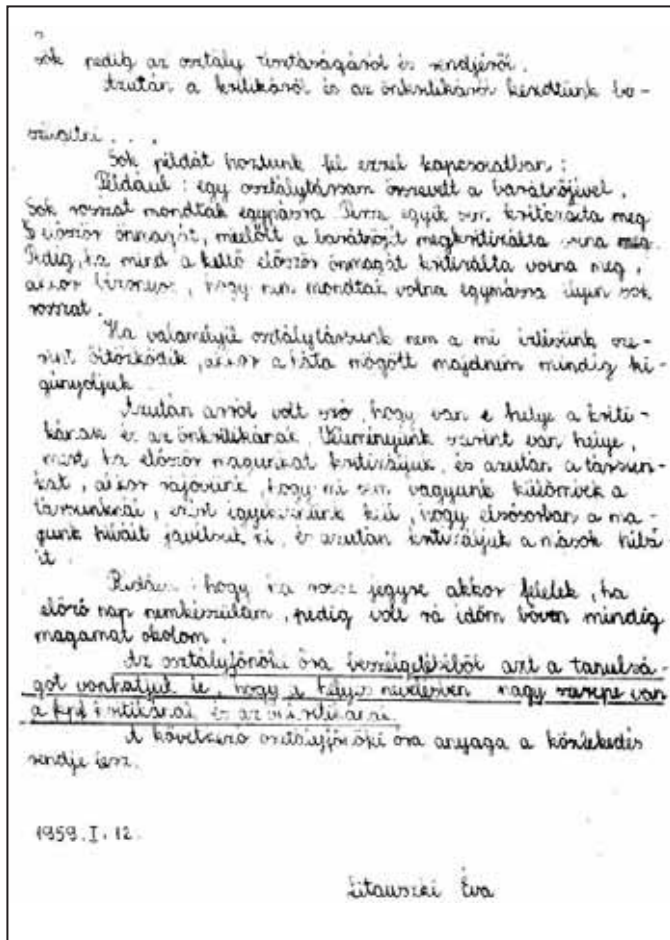 sok pedig az osztály tisztaságáról és rendjéről.
Azután a kritikáról és az önkritikáról kezdtünk be-
szélni...
Sok példát hoztunk fel ezzel kapcsolatban:
Például: egy osztálytársam összeveszett a barátnőjével.
Sok rosszat mondtak egymásra. Persze egyik sem kritizálta meg
először önmagát, mielőtt a barátnőjét megkritizálta volna meg.
Pedig, ha mind a kettő először önmagát kritizálta volna meg,
akkor bizonyos, hogy nem mondtak volna egymásra ilyen sok
rosszat.
Ha valamelyik osztálytársunk nem a mi ízlésünk sze-
rint öltözködik, akkor a háta mögött majdnem mindíg ki-
gúnyoljuk
Azután arról volt szó, hogy van e helye a kriti-
kának és az önkritikának. Véleményünk szerint van helye,
mert ha először magunkat kritizáljuk, és azután a társun-
kat, akkor rájövünk, hogy mi sem vagyunk különbek a
társunknál, ezért igyekeznünk kell, hogy elsősorban a ma-
gunk hibáit javítsuk ki, és azután kritizáljuk a mások hibá-
it.
hogy ha rossz jegyre akkor felelek, ha
előző nap nemkészülám, pedig volt rá időm bőven mindíg
magamat okolom.
Az osztályfőnöki óra beszélgetéséből azt a tanulsá-
got vonhatjuk le, hogy a helyes nevelésben nagy szerepe van
a kritikának és az önkritikának.
A következő osztályfőnöki óra anyaga a közlekedés
rendje lesz.
1959.I.12.
Litauszki Éva